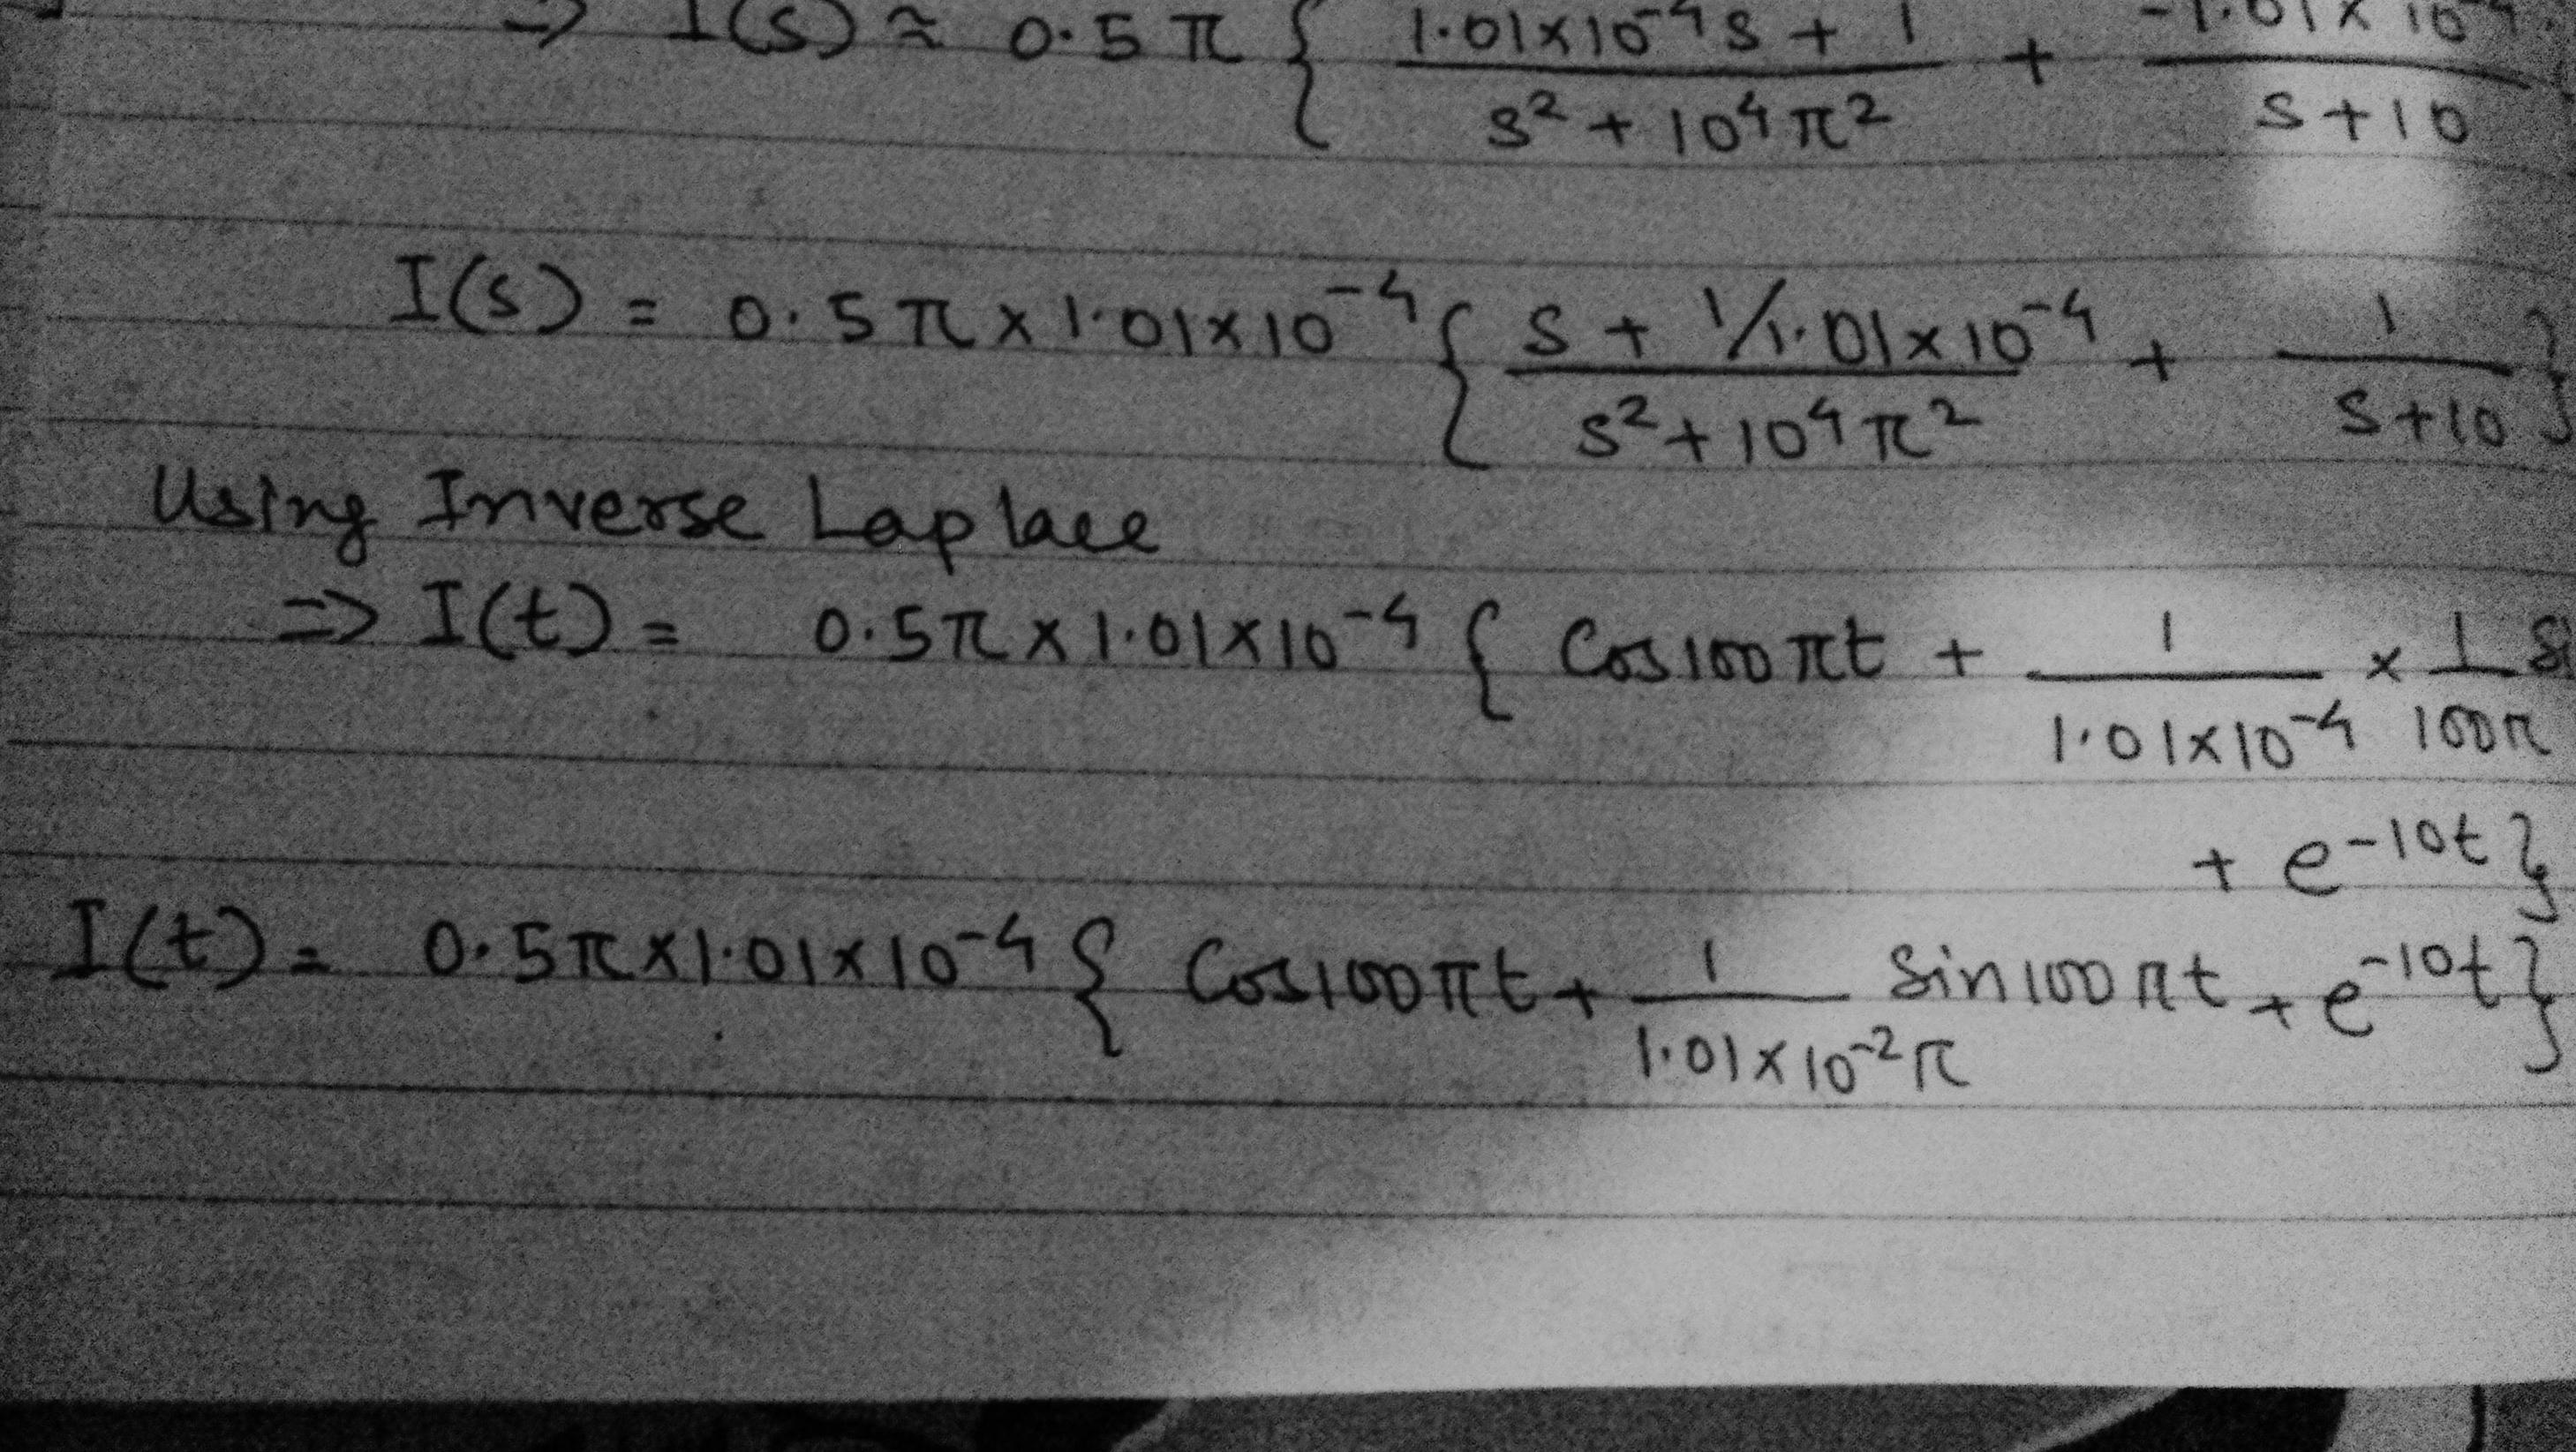 ⇒ I(s) ≈ 0.5π { (1.01×10⁻⁴s + 1)/(s² + 10⁴π²) + (-1.01×10⁻⁴)/(s+10)
I(s) = 0.5π×1.01×10⁻⁴ { (s + 1/1.01×10⁻⁴)/(s²+10⁴π²) + 1/(s+10) }
Using Inverse Laplace
⇒ I(t) = 0.5π×1.01×10⁻⁴ { Cos100πt + 1/(1.01×10⁻⁴) × 1/(100π)
+ e⁻¹⁰ᵗ }
I(t) = 0.5π×1.01×10⁻⁴ { Cos100πt + 1/(1.01×10⁻²π) Sin100πt + e⁻¹⁰ᵗ }